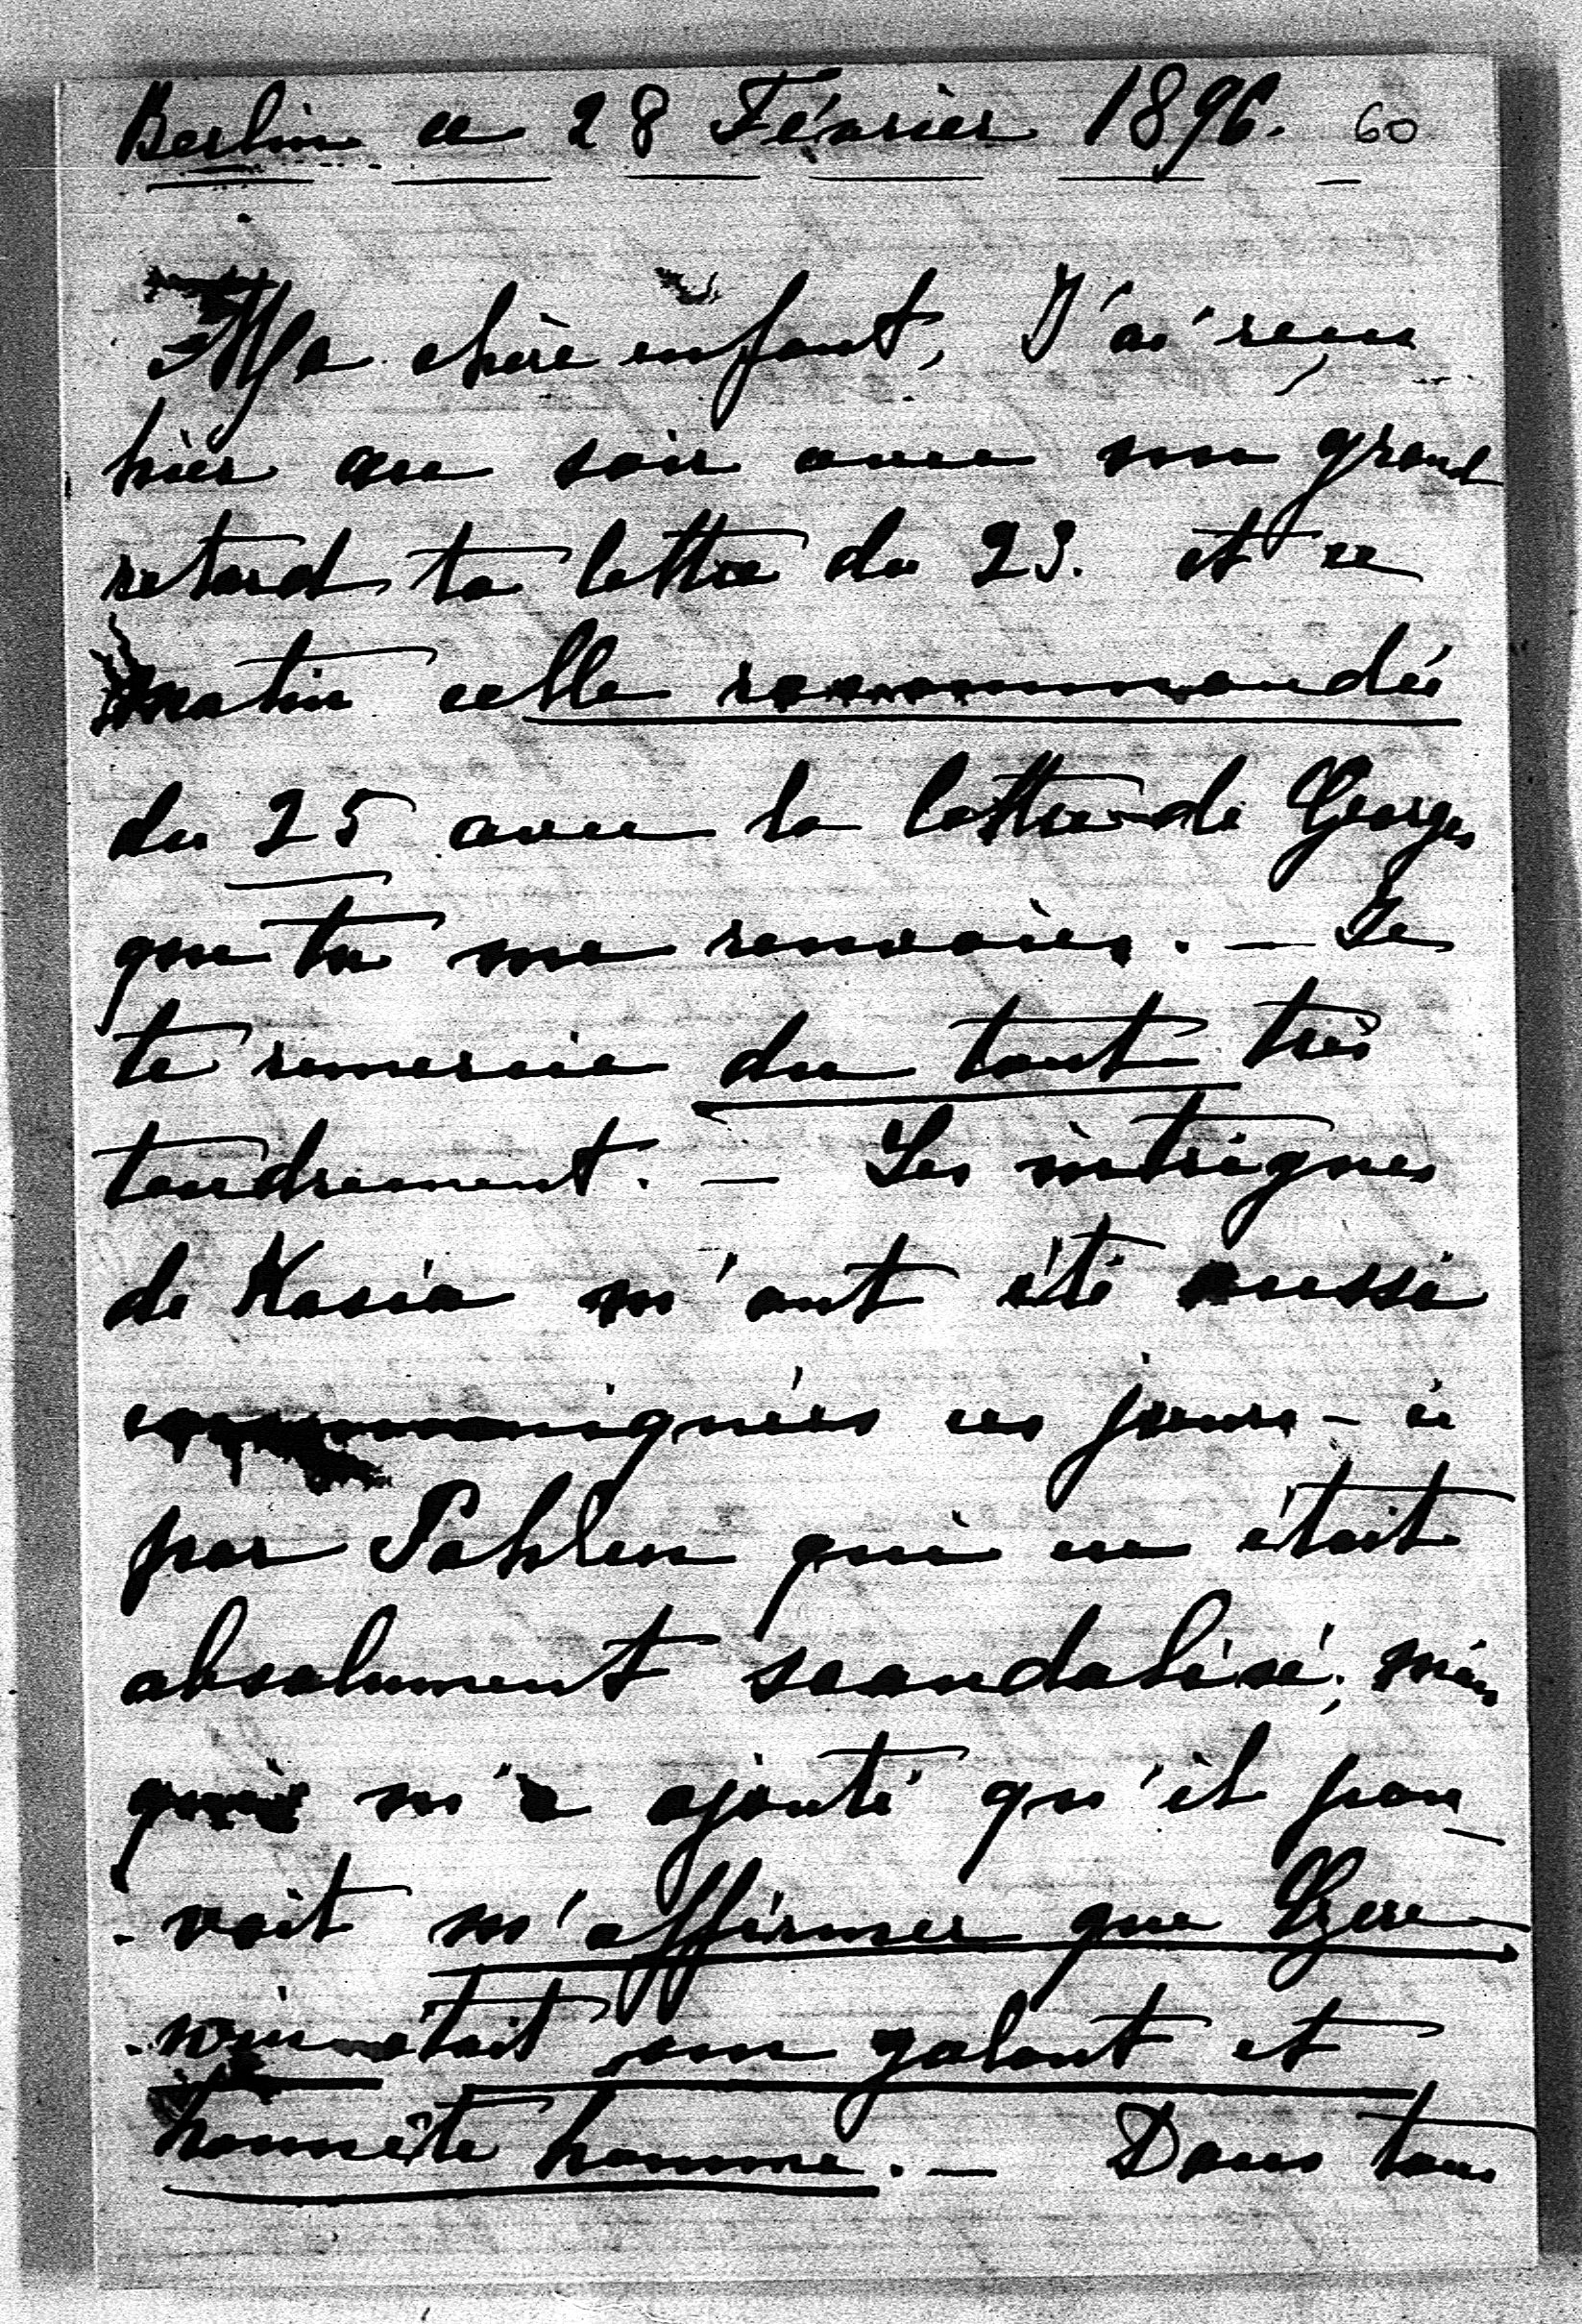 Berlin ce 28 Février 1896. 60
Ma chère enfant, J'ai reçu
hier au soir avec un grand
retard ta lettre du 23. et ce
matin celle recommandée
du 25 avec la lettre de Georges
que tu me renvoies. — Je
te remercie du tout très
tendrement. — Les intrigues
de Kasia m'ont été aussi
communiquées ces jours-ci
par Pahlen qui en était
absolument scandalisé;
qui m'a ajouté qu'il pou-
-vait m'affirmer que
était un galant et
honnête homme. — Dans tous